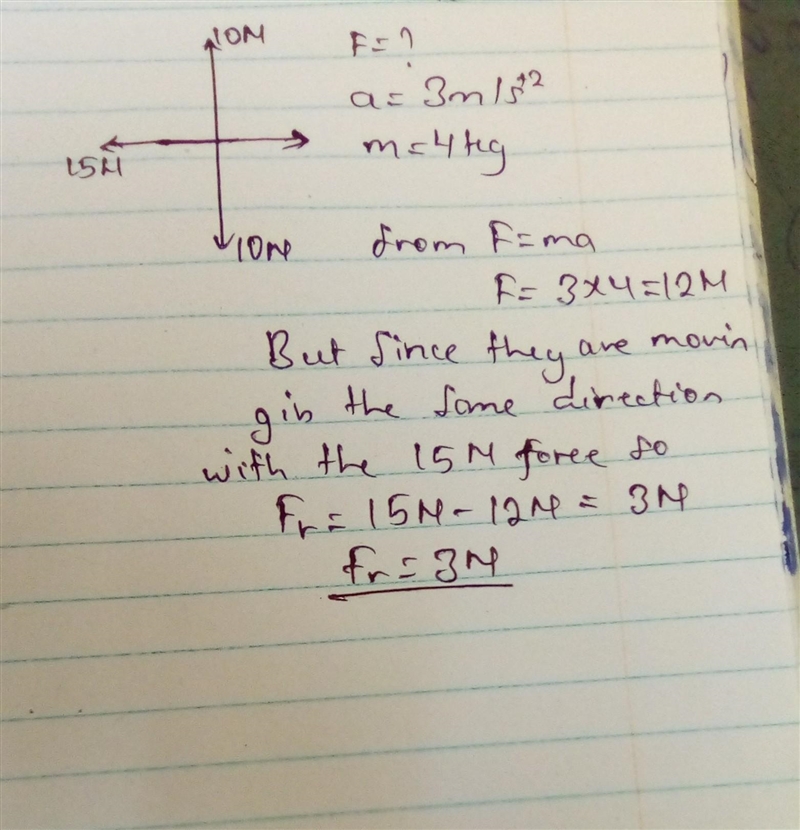 10N
F = ?
a = 3m/s^2
15N
m = 4kg
10N
from F = ma
F = 3x4 = 12N
But since they are movin
g in the same direction
with the 15N force so
Fr = 15N - 12N = 3N
Fr = 3N